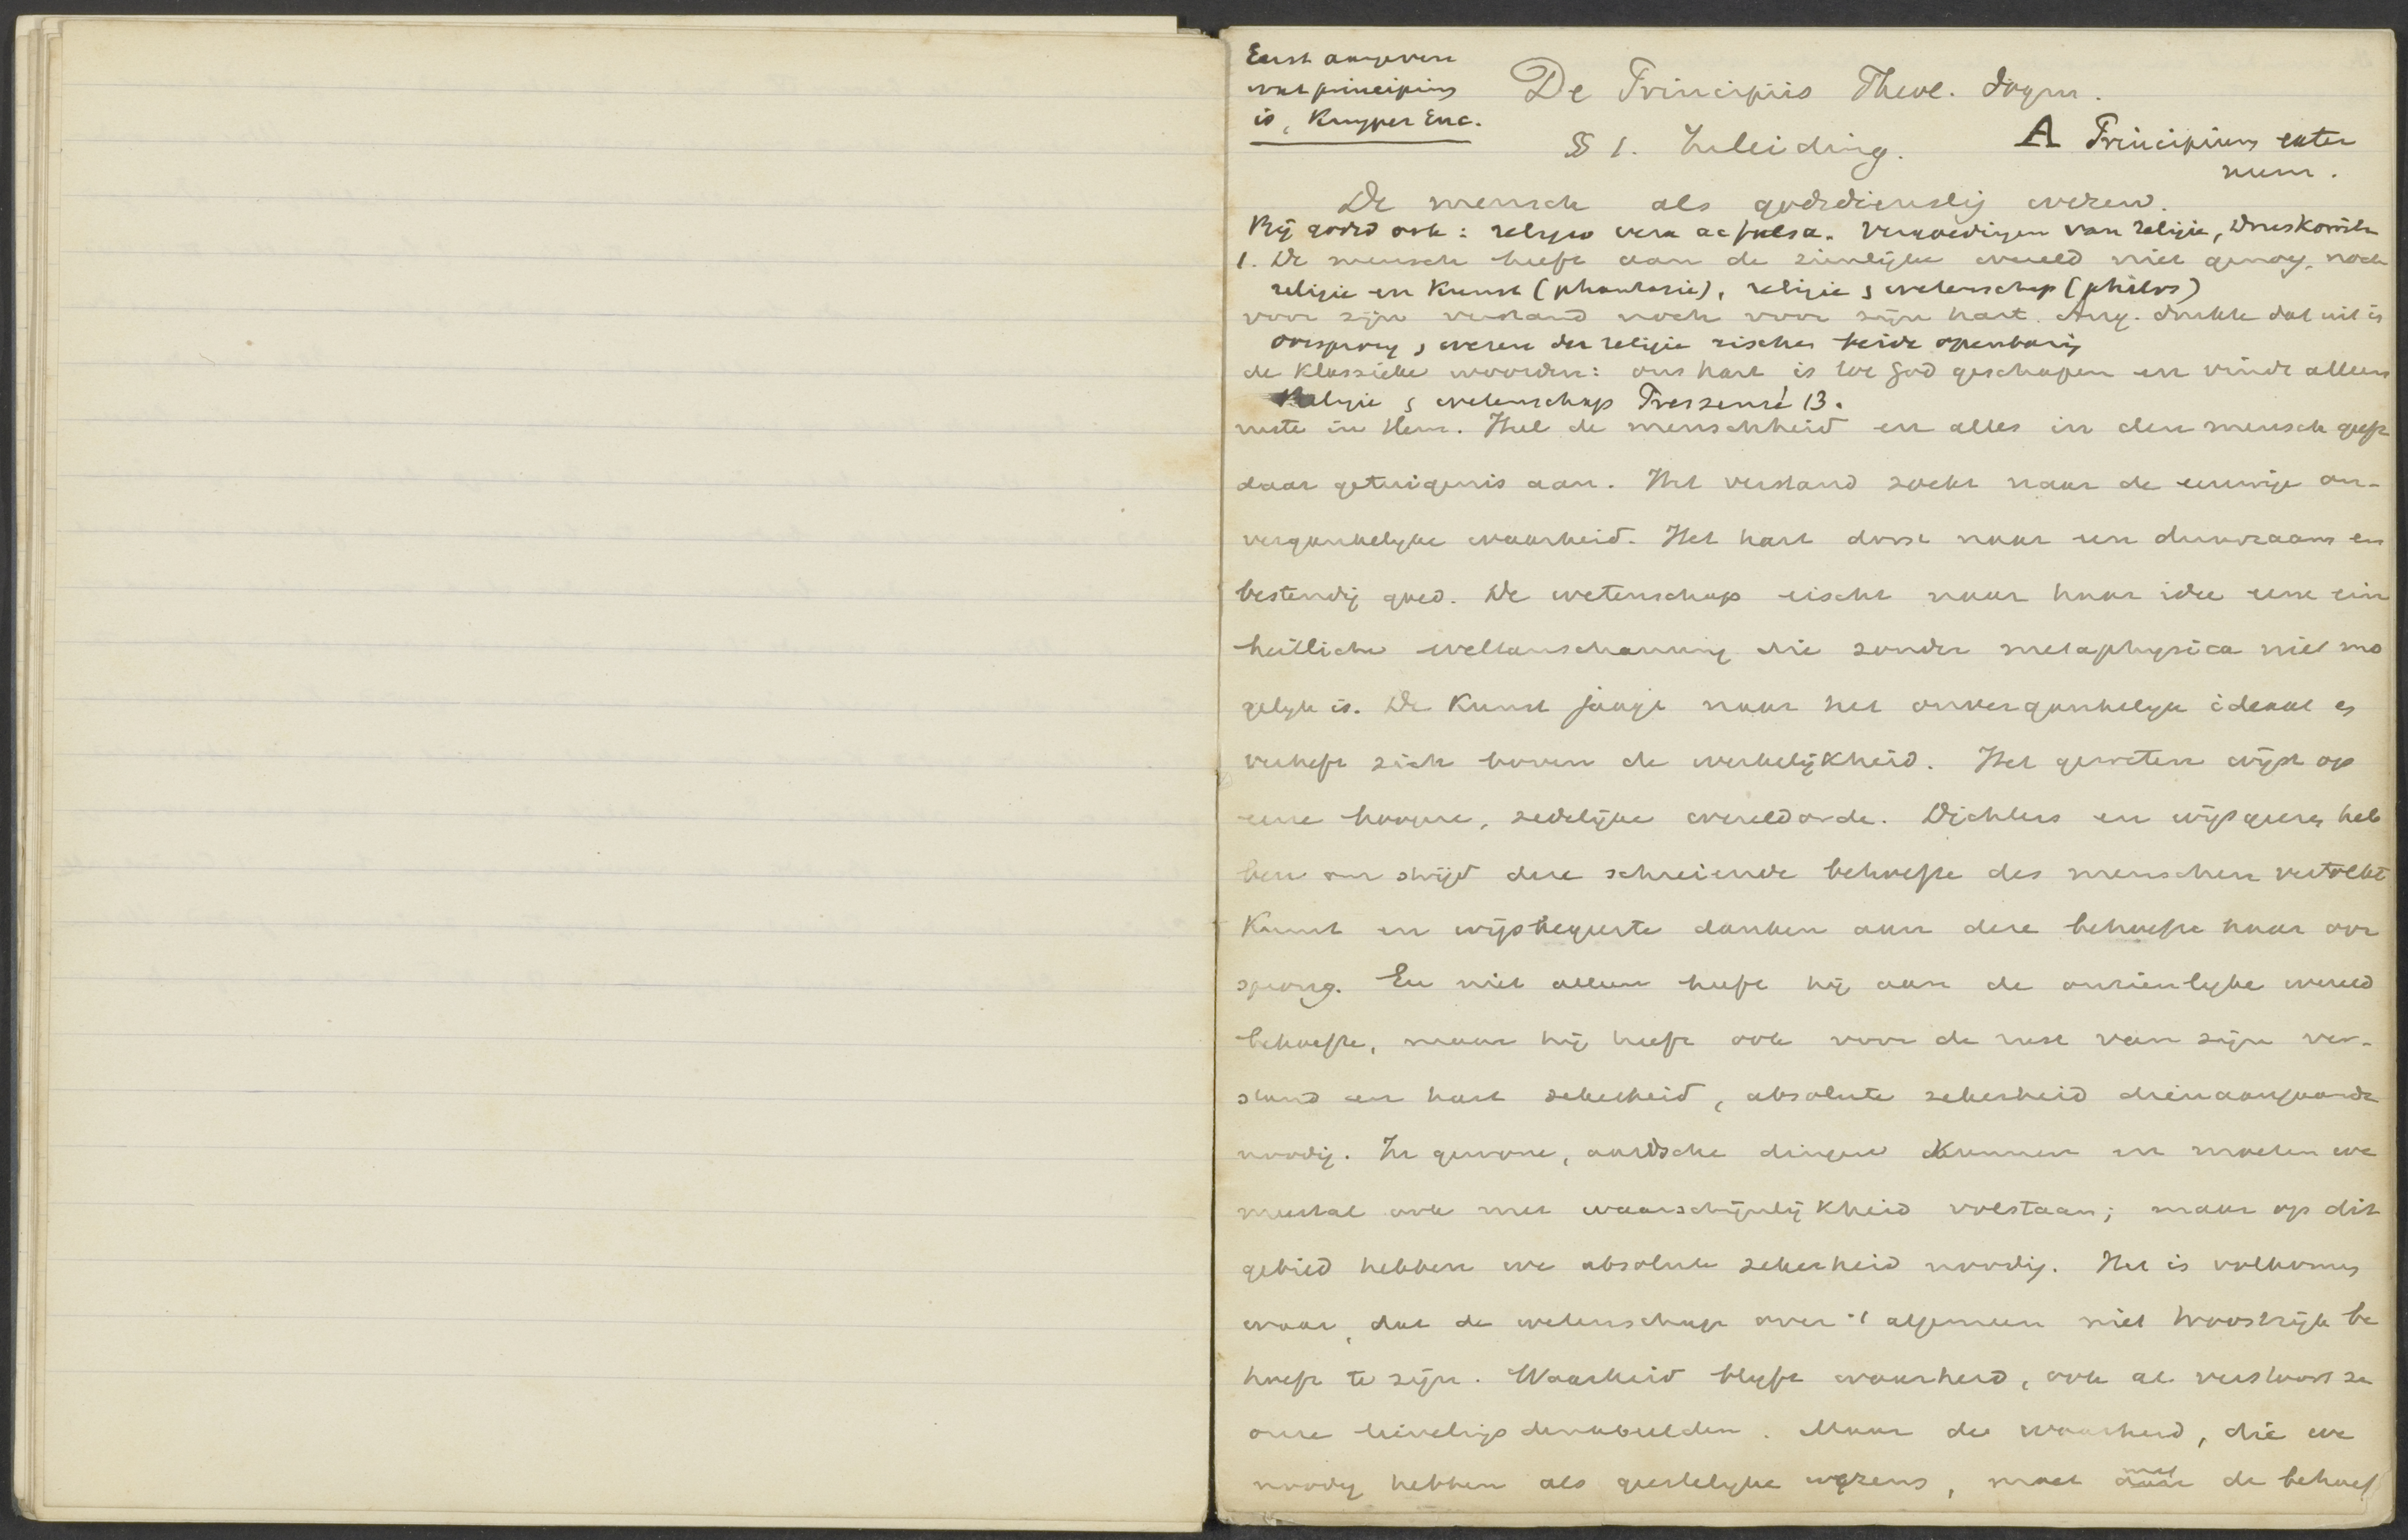 Eerst aangeven
wat principium
is, Kuyper Enc.
De Principiis Theol. dogm.
§ 1. Inleiding.
A Principium exter
num.
De mensch als godsdienstig wezen.
Bij godsd ook: religio vera ac falsa. van religie,
1. De mensch heeft aan de zienlijke wereld niet genoeg, noch
religie en Kunst (phantasie), religie & wetenschap (philos)
voor zijn verstand noch voor zijn hart. Aug. drukte dat uit in
oorsprong & wezen der religie eischen beide openbaring
de klassieke woorden: ons hart is tot God geschapen en vindt alleen
Religie & wetenschap Pressensé 13.
ruste in Hem. Heel de menschheid en alles in den mensch geeft
daar getuigenis aan. Het verstand zoekt naar de eeuwige on-
vergankelijke waarheid. Het hart dorst naar een duurzaam en
bestendig goed. De wetenschap eischt naar haar idee eene ein
heitliche weltanschauung die zonder metaphysica niet mo
gelijk is. De Kunst jaagt naar het onvergankelijk ideaal en
verheft zich boven de werkelijkheid. Het geweten wijst op
eene hoogere, zedelijke wereldorde. Dichters en wijsgeeren heb
ben om strijd deze schreiende behoefte des menschen vertolkt
Kunst en wijsbegeerte danken aan deze behoefte haar oor
sprong. En niet alleen heeft hij aan de onzienlijke wereld
behoefte, maar hij heeft ook voor de rust van zijn ver-
stand en hart zekerheid, absolute zekerheid dienaangaande
noodig. In gewone, aardsche dingen kunnen en moeten we
meestal ook met waarschijnlijkheid volstaan; maar op dit
gebied hebben we absolute zekerheid noodig. Het is volkomen
waar, dat de wetenschap over 't algemeen niet troostrijk be
hoeft te zijn. Waarheid blijft waarheid, ook al verstoort ze
onze lievelingsdenkbeelden. Maar de waarheid, die we
noodig hebben als geestelijke wezens, moet met de behoef